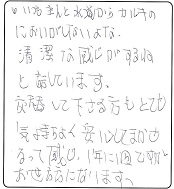 ・いつもきんと水道からカルキの
においがしないよな。
清潔な感じがするね
と話しています。
交換して下さる方もとても
気持ちよく安心してまかせ
るって感じ、1年に1回ですが
お世話になります。